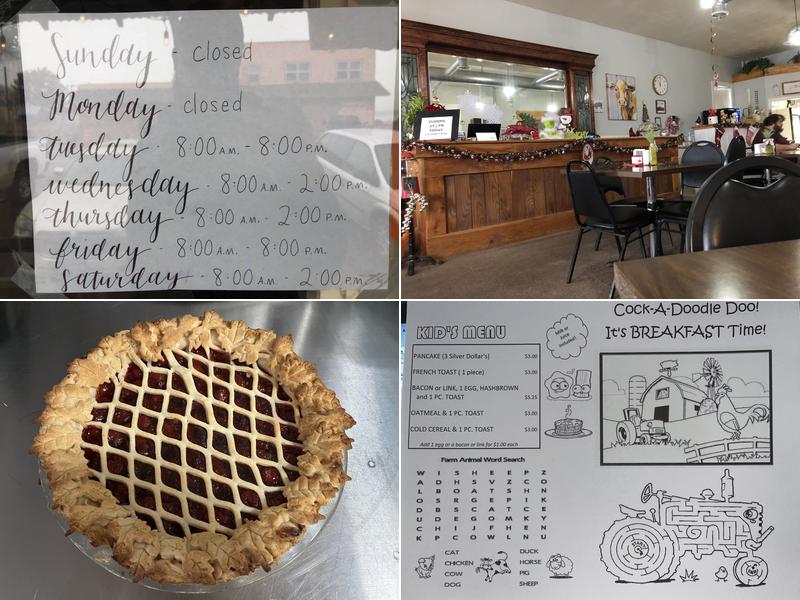 Sunday - closed
Monday - closed
tuesday - 8:00 A.M. - 8:00 P.M.
wednesday - 8:00 A.M. - 2:00 P.M.
thursday - 8:00 A.M. - 2:00 P.M.
friday - 8:00 A.M. - 8:00 P.M.
saturday - 8:00 A.M. - 2:00 P.M.
CLOSING
AT 2 PM
TODAY
KID'S MENU
Milk or
juice
included!
PANCAKE (3 Silver Dollar's) $3.00
FRENCH TOAST ( 1 piece) $3.00
BACON or LINK, 1 EGG, HASHBROWN
and 1 PC. TOAST $5.25
OATMEAL & 1 PC. TOAST $3.00
COLD CEREAL & 1 PC. TOAST $3.00
Add 1 egg or a bacon or link for $1.00 each
Cock-A-Doodle Doo!
It's BREAKFAST Time!
Farm Animal Word Search
W I S H E E P Z
A D H S V Z C O
L B O A T S H N
O S R G E P I K
D B S C A T C E
U D E G O M K Y
C H I J F H E N
K P C O W L N U
CAT DUCK
CHICKEN HORSE
COW PIG
DOG SHEEP